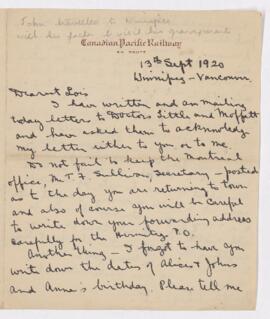 John travelled to Winnipeg
with his father to visit his grandparents
Canadian Pacific Railway
EN ROUTE
13th Sept 1920
Winnipeg - Vancouver
Dearest Lois
I have written and am mailing
today letters to Doctors Little and Moffatt
and have asked them to acknowledge
my letter either to you or to me.
Do not fail to keep the Montreal
office, Mr T. F. Sullivan, Secretary - posted
as to the day you are returning to town
and also of course you will be careful
to write down your forwarding address
carefully for the P.O.
Another thing - I forgot to have you
write down the dates of Alice's & John's
and Anna's birthday. Please tell me